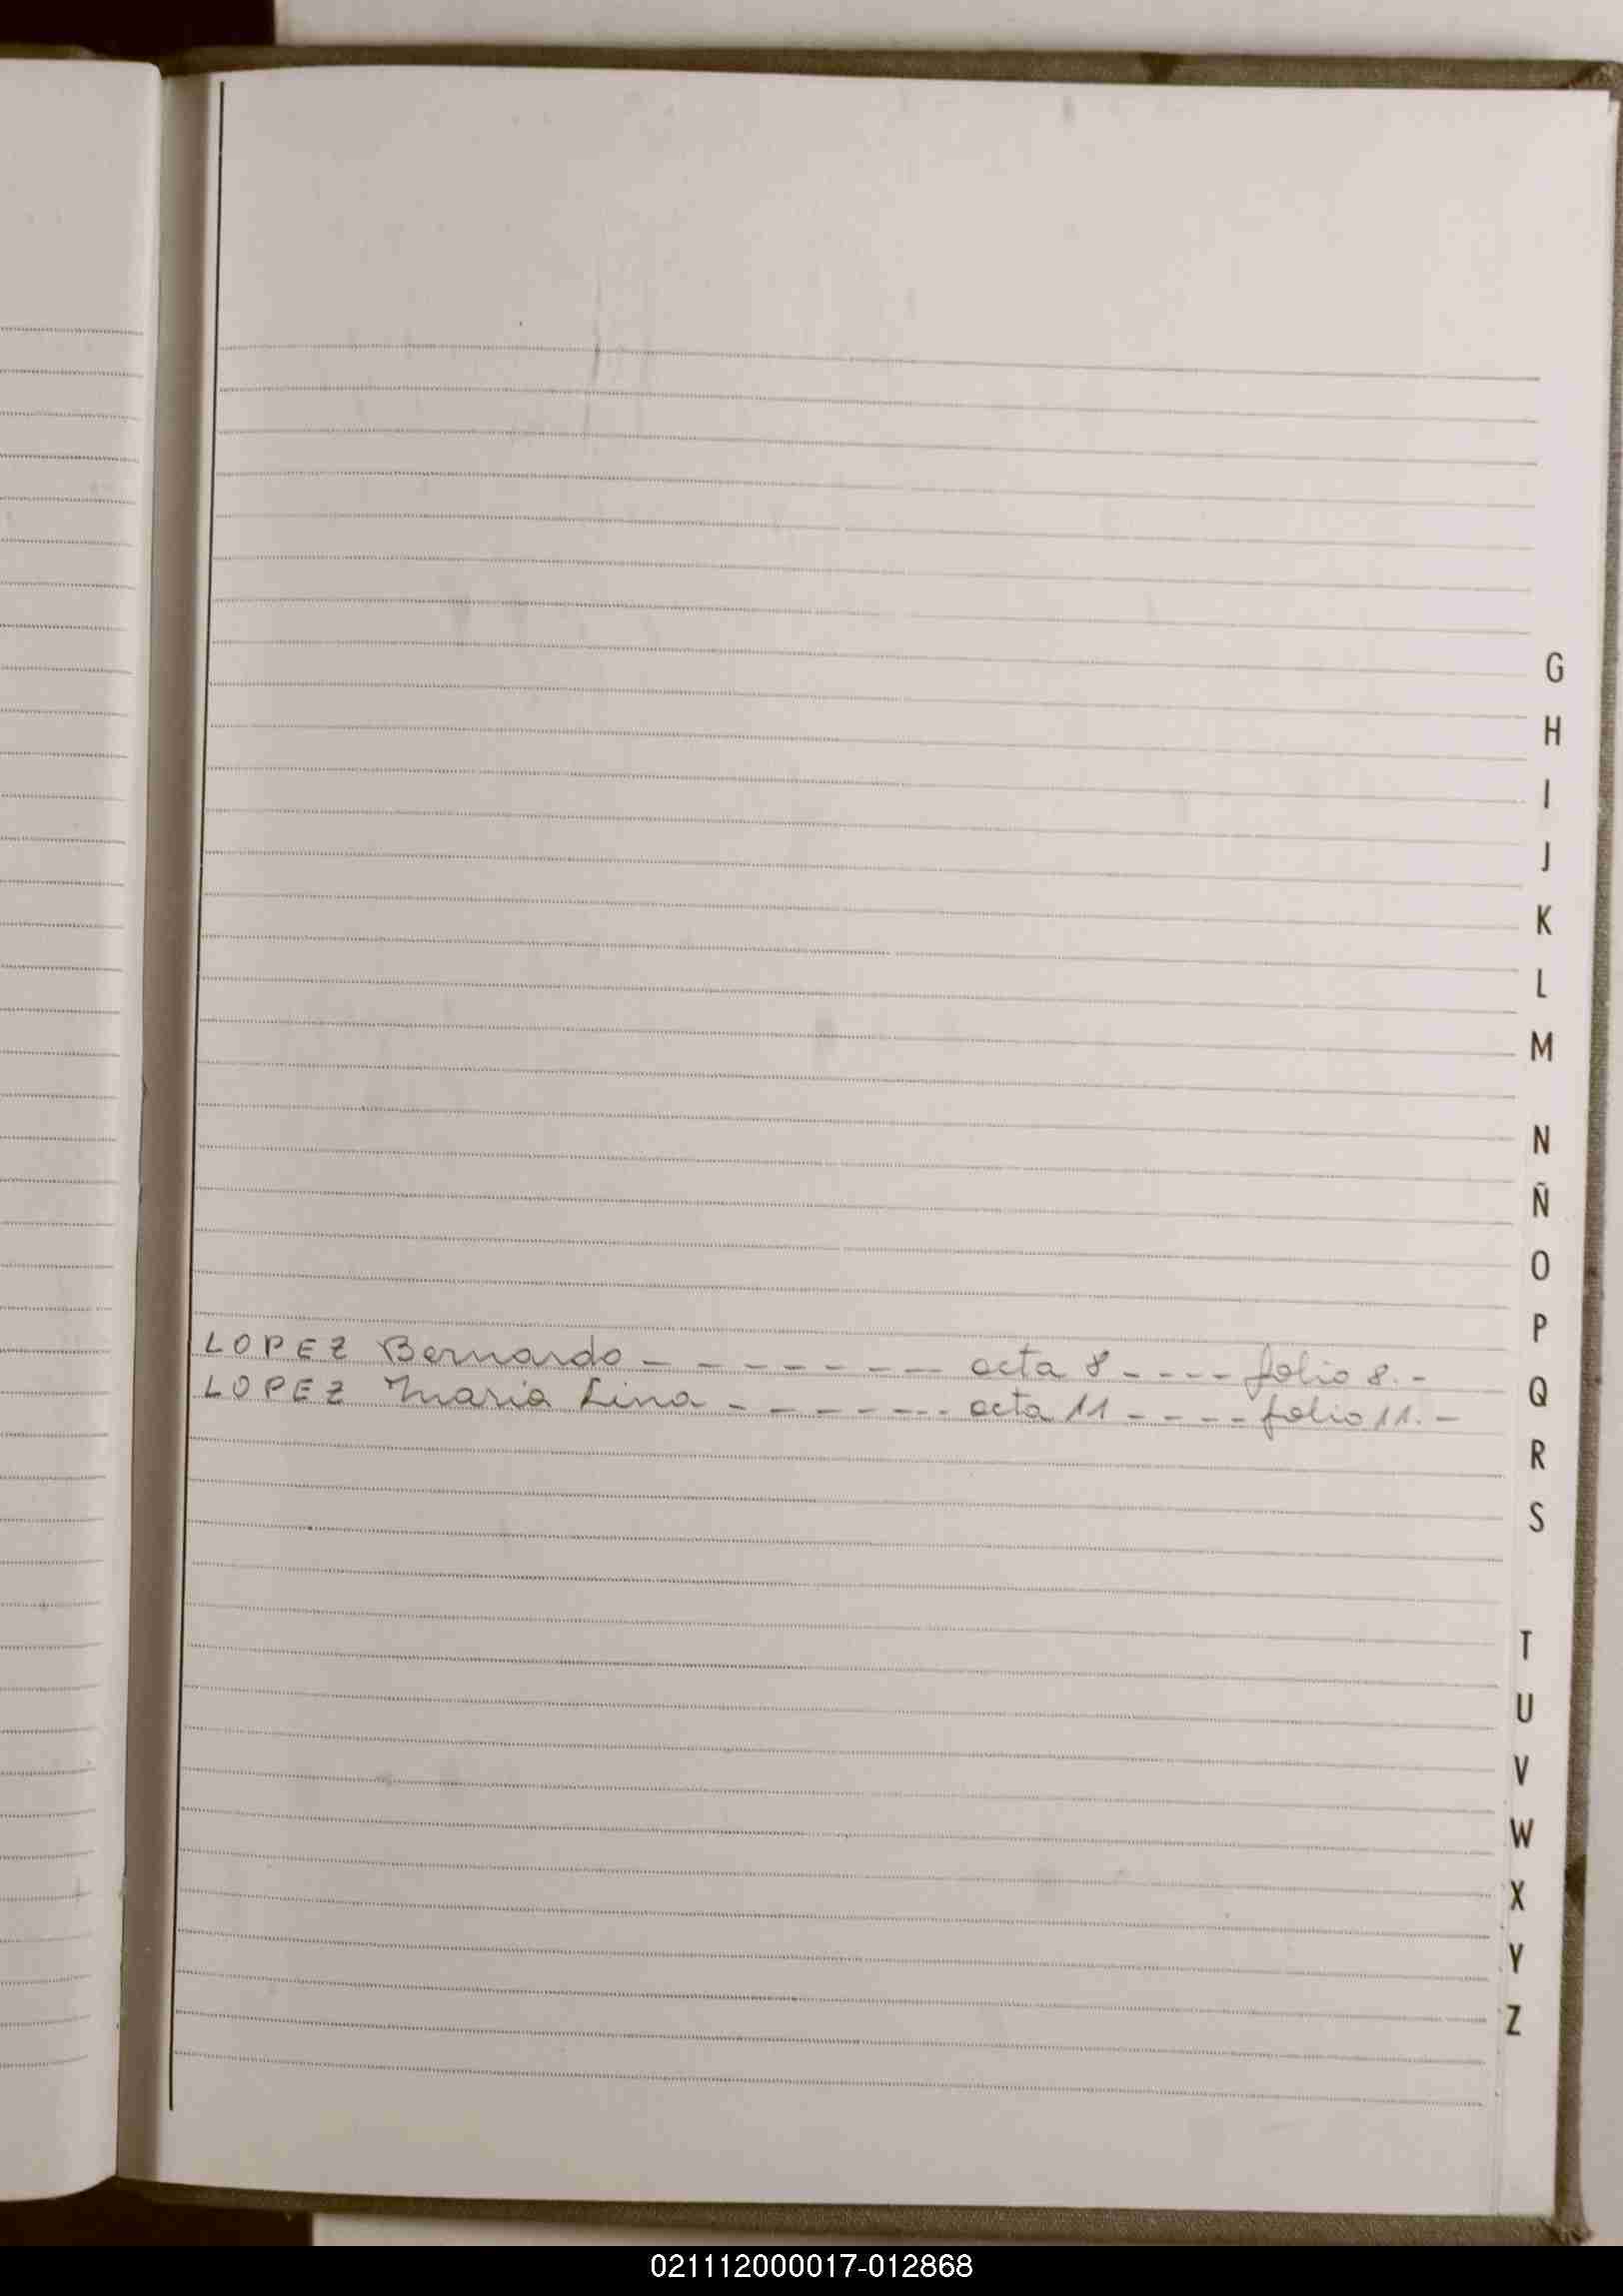 G
H
I
J
K
L
M
N
Ñ
O
P
LOPEZ Bernardo - - - - - - - acta 8 - - - - folio 8. -
Q
LOPEZ Maria Lina - - - - - - - acta 11 - - - - folio 11. -
R
S
T
U
V
W
X
Y
Z
021112000017-012868